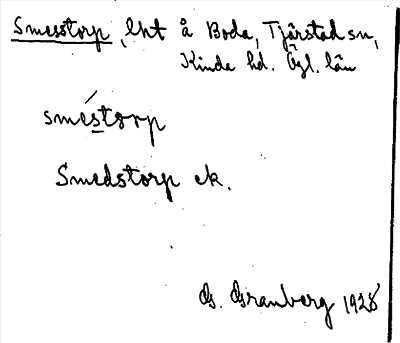 Smesstorp, lht å Boda, Tjärstad sn,
Kinda hd. Ögl. län
sméstorp
Smedstorp ek.
G. Granberg 1928